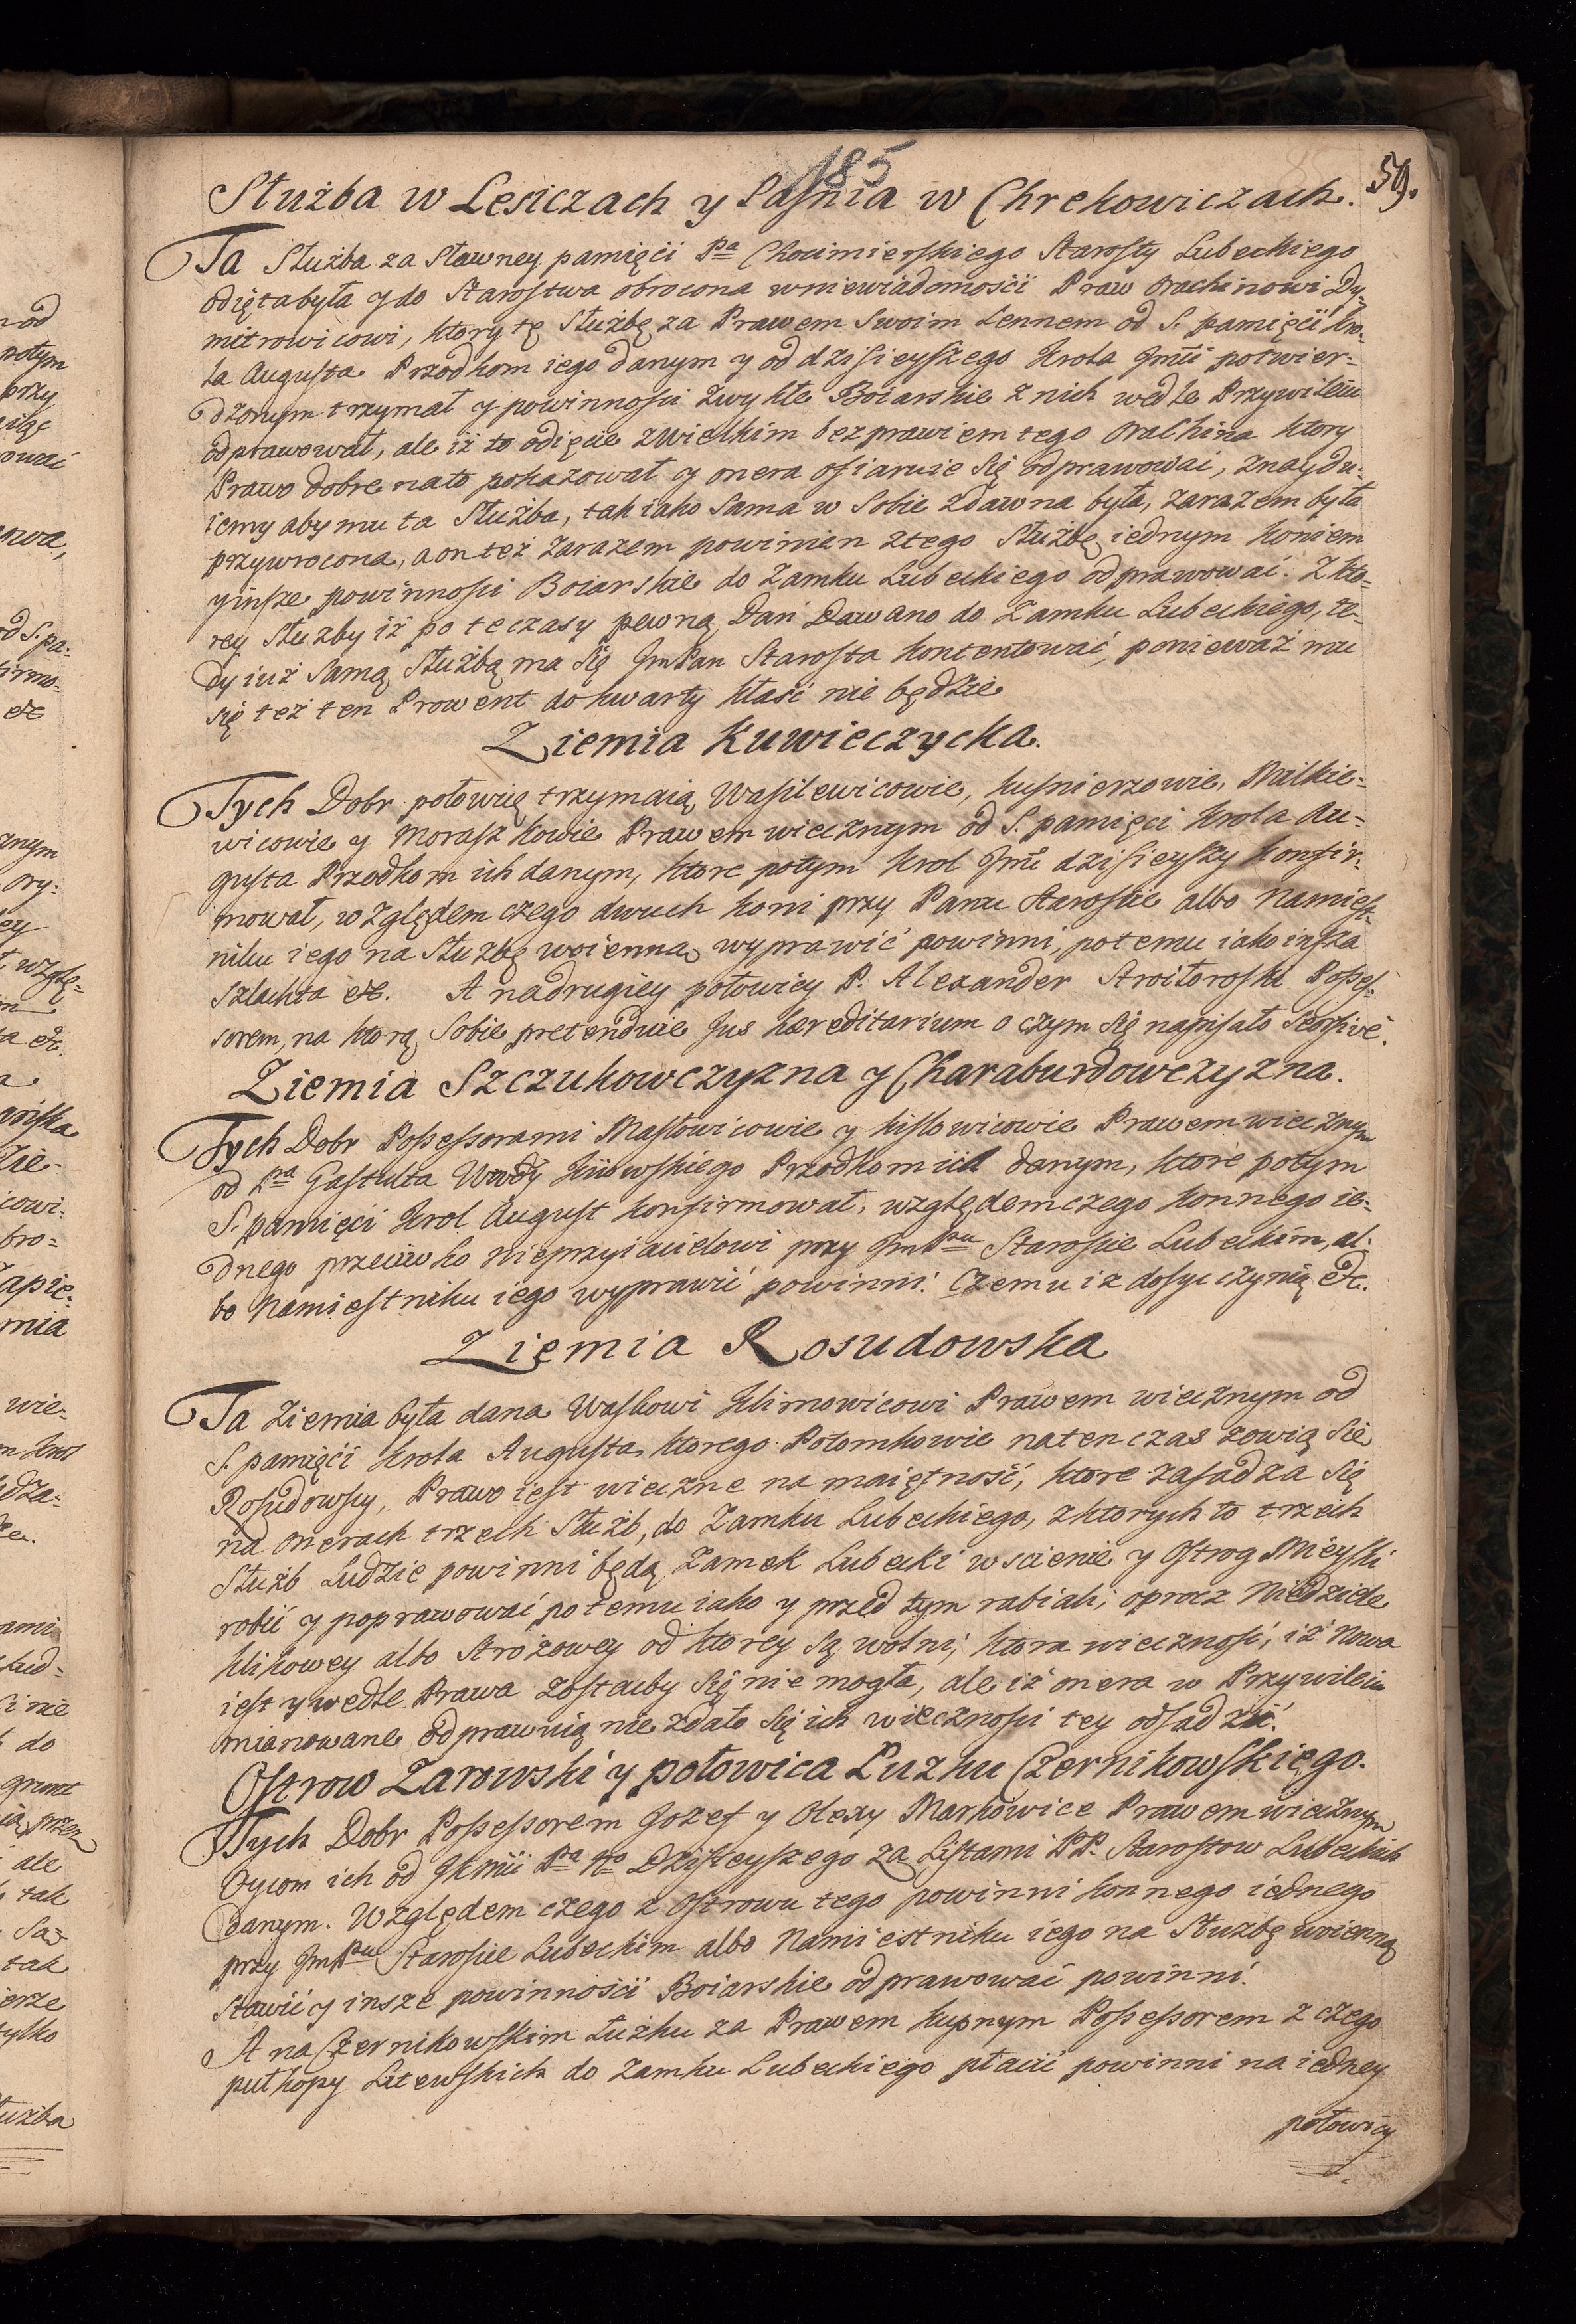 185
59.
Służba w Lesiczach y Paſnia w Chrekowiczach.
Ta Służba za Sławney pamięći Pa Chocimierſkiego Staroſty Lubeckiego
odiętabyła y do Staroſtwa obrocona wniewiadomośći Praw Orachinowi Dy-
mitrowicowi, ktory tę Służbę za Prawem Swoim Lennem od S. pamięći Kro-
la Auguſta Przodkom iego danym y od dziſieyſzego Krola Jmći potwier-
dzonym trzymał y powinnoſci zwykłe Boiarskie z nich wedle Przywileiu
odprawował, ale iż to odięcie zwielkim bezprawiem tego Orachina ktory
Prawo dobre nato pokazował y onera ofiaruie się odprawować, znaydu-
iemy aby mu ta Służba, tak iako Sama w Sobie zdawna była, zarazem była
przywrocona, a on też zarazem powinien ztego Służbę iednym koniem
yinſze powinnoſci Boiarskie do Zamku Lubeckiego odprawować. Z kto-
rey Służby iż po te czasy pewną Dań Dawano do Zamku Lubeckiego, te-
dy iuż Samą Służbą ma się JmPan Staroſta kontentować, ponieważ mu
się też ten Prowent do kwarty kłaść nie będzie
Ziemia Kuwieczycka.
Tych Dobr połowię trzymaią Waſilewicowie, Kuſnierzowie, Milkie-
wicowie y Moraſzkowie Prawem wiecznym od S. pamięci Krola Au-
guſta Przodkom ich danym, ktore potym Krol Jmć dziſieyſzy konfir-
mował, względem czego dwuch koni przy Panu Staroſcie albo Namieſt-
niku iego na Służbę woienną wyprawić powinni, potemu iako inſza
Szlachta etc. A nadrugiey połowicy P. Alexander Poſſeſ-
sorem, na ktorą Sobie pretenduie Jus hæreditarium o czym się napiſało Seorſive.
Ziemia Szczukowczyzna y Charaburdowczyzna.
Tych Dobr Poſſeſſorami Maſłowicowie y Kiſłowicowie Prawem wiecznym
od Pna Gaſtułta Wwdy Kiiowſkiego Przodkom iich danym, ktore potym
S. pamięći Krol Auguſt konfirmował, względemczego konnego ie-
dnego przeciwko Nieprzyiacielowi przy JmPnu Staroſcie Lubeckim, al-
bo Namieſtniku iego wyprawić powinni. Czemu iż dosyc czynią etc.
Ziemia Rosudowska
Ta Ziemia była dana Waſkowi Klimowicowi Prawem wiecznym od
S. pamięći Krola Auguſta, ktorego Potomkowie natenczas zowią Się
Roſudowſcy, Prawo ieſt wieczne na maiętność, ktore zaſadza Się
na onerach trzech Służb, do Zamku Lubeckiego, z ktorych to trzech
Służb Ludzie powinni będą Zamek Lubecki w scienie y Oſtrog Mieyſki
robić y poprawować potemu iako y przed tym rabiali, oprocz Niedziele
klikowey albo Strożowey od ktorey są wolni, ktora wiecznoſć, iż Nowa
ieſt y wedle Prawa zoſtaćby Się nie mogła, ale iż onera w Przywileiu
mianowane odprawuią nie zdało Się ich wiecznoſci tey odſadzić.
Oſtrow Zarowski y połowica Łuzku Czernikowſkiego.
Tych Dobr Poſſeſſorem Jozef y Olexy Markowice Prawem wiecznym
Oycom ich od JKMći Pa No Dziſieyſzego za Liſtami PP. Staroſtow Lubeckich
danym. Względem czego z Oſtrowu tego powinni konnego iednego
przy JmPnu Staroſcie Lubeckim albo Namiestniku iego na Służbę woienną
Stawić y insze powinnośći Boiarskie odprawować powinni.
A na Czernikowſkim Łużku za Prawem kupnym Poſſeſſorem z czego
puł kopy Litewſkich do Zamku Lubeckiego płacić powinni na iedney
połowicy